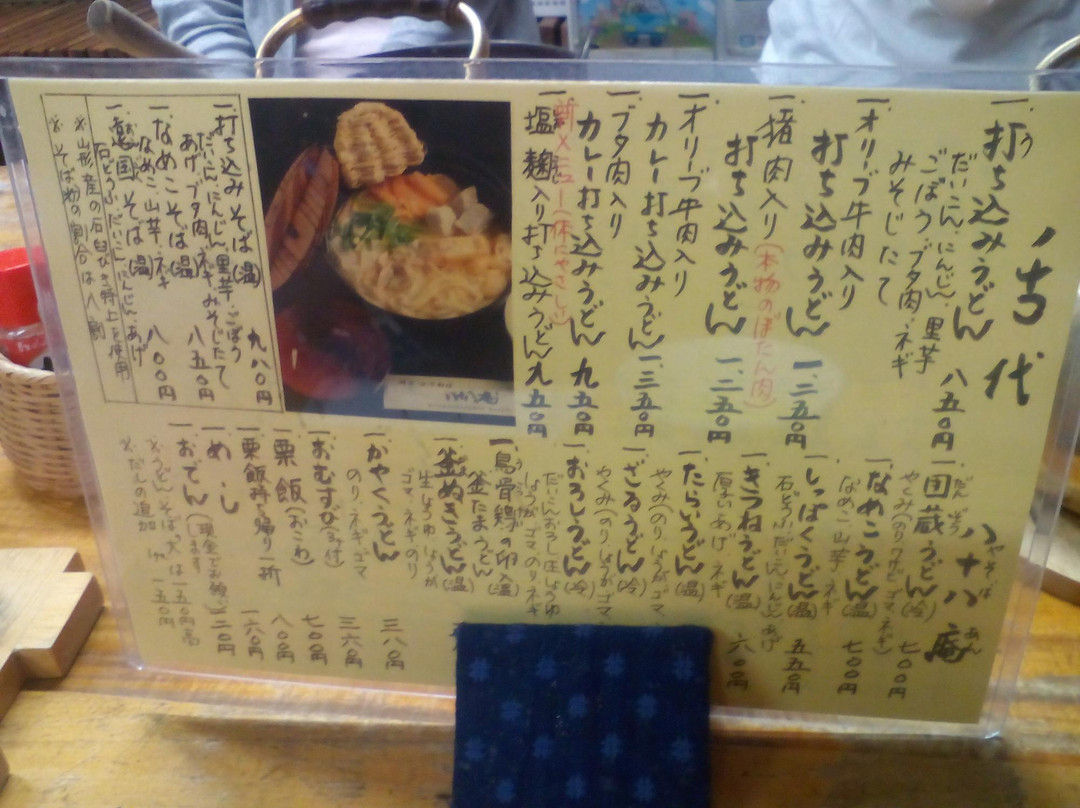 お古代
八十八庵
やそば あん
一、打ち込みうどん 八五〇円
だいこん、にんじん、里芋
ごぼう、ブタ肉、ネギ
みそじたて
一、オリーブ牛肉入り
打ち込みうどん 一、二五〇円
一、猪肉入り(本物のぼたん肉)
打ち込みうどん 一、二五〇円
一、オリーブ牛肉入り
カレー打ち込みうどん 一、三五〇円
一、ブタ肉入り
カレー打ち込みうどん 九五〇円
新メニュー(体にやさしい)
一、塩麹入り打ち込みうどん 九五〇円
一、打ち込みそば(温) 九八〇円
だいこん、にんじん、里芋、ごぼう
あげ、ブタ肉、ネギ、みそじたて
一、なめこそば(温) 八五〇円
なめこ、山芋、ネギ
一、そば(温) 八〇〇円
石どうふ、だいこん、にんじん、あげ
※山形産の石臼びき特上を使用
※そば粉の割合は八割
一、団蔵うどん(冷) 七〇〇円
やくみ(のり、ワサビ、ゴマ、ネギ)
一、なめこうどん(温) 七〇〇円
なめこ、山芋、ネギ
一、しっぽくうどん(温) 五五〇円
石どうふ、だいこん、にんじん、あげ
一、きつねうどん(温) 六〇〇円
厚いあげ、ネギ
一、たらいうどん(温)
やくみ(のり、しょうが、ゴマ、
一、ざるうどん(冷)
やくみ(のり、しょうが、ゴマ、
一、おろしうどん(冷)
だいこんおろし、生じょうゆ
しょうが、ゴマ、のり、ネギ
一、烏骨鶏の卵入
釜たまうどん(温)
一、釜ぬきうどん(温)
生じょうゆ、しょうが
ゴマ、ネギ、のり
一、かやくうどん 三八〇円
のり、ネギ、ゴマ
一、おむすび(み付) 三六〇円
一、栗飯(おこわ) 七〇〇円
一、栗飯持ち帰り一折 八〇〇円
一、めし 一六〇円
一、おでん(現金でお願いします) 一二〇円
※うどん、そば、大は一五〇円高
※だしの追加 一五〇円